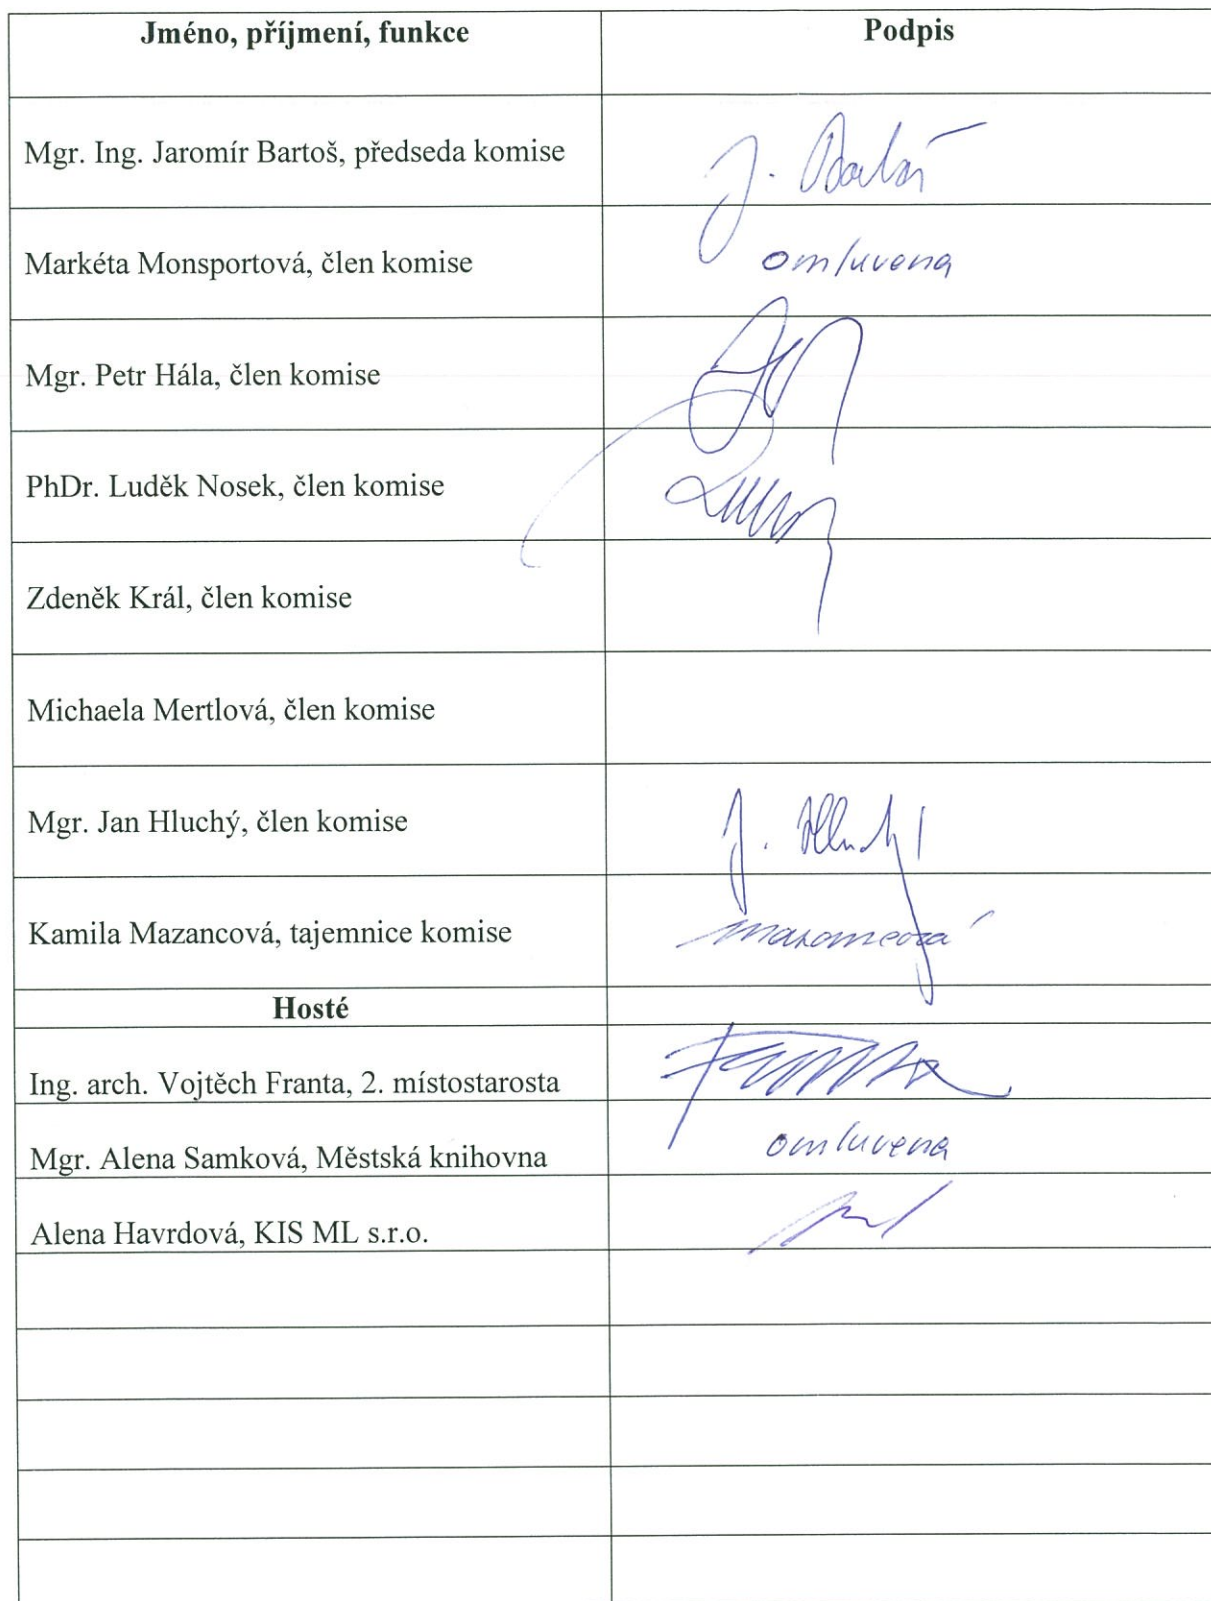 Jméno, příjmení, funkce Podpis
Mgr. Ing. Jaromír Bartoš, předseda komise J. Bartoš
Markéta Monsportová, člen komise omluvena
Mgr. Petr Hála, člen komise
PhDr. Luděk Nosek, člen komise
Zdeněk Král, člen komise
Michaela Mertlová, člen komise
Mgr. Jan Hluchý, člen komise J. Hluchý
Kamila Mazancová, tajemnice komise Mazancová
Hosté
Ing. arch. Vojtěch Franta, 2. místostarosta
Mgr. Alena Samková, Městská knihovna omluvena
Alena Havrdová, KIS ML s.r.o.